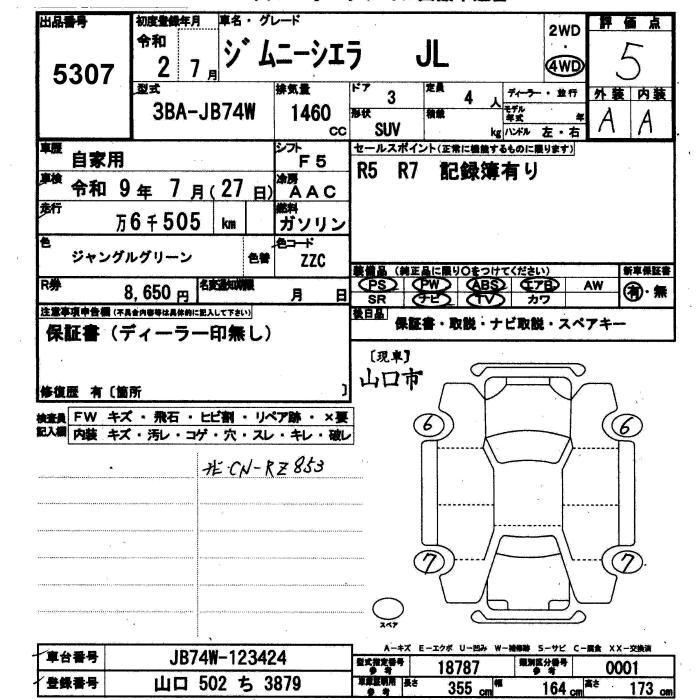 出品番号
5307
初度登録年月
令和
2 7月
車名・グレード
ジムニーシエラ JL
2WD
・
4WD
評価点
5
型式
3BA-JB74W
排気量
1460 CC
ドア
3
定員
4 人
ディーラー・並行
モデル年式 年
外装 内装
A A
形状
SUV
積載
kg
ハンドル 左・右
車歴
自家用
シフト
F5
セールスポイント(正常に機能するものに限ります)
R5 R7 記録簿有り
車検
令和 9年 7月(27日)
冷房
AAC
走行
万6千505 km
燃料
ガソリン
色
ジャングルグリーン
色替
色コード
ZZC
R券
8,650円
名変通知期限
月 日
装備品(純正品に限り○をつけてください)
PS PW ABS エアB AW
SR ナビ TV カワ
新車保証書
有・無
後日品
保証書・取説・ナビ取説・スペアキー
注意事項申告欄(不具合内容等は具体的に記入して下さい)
保証書(ディーラー印無し)
修復歴 有〔箇所 〕
〔現車〕
山口市
検査員記入欄
FW キズ・飛石・ヒビ割・リペア跡・×要
内装 キズ・汚レ・コゲ・穴・スレ・キレ・破レ
CN-RZ853
6 6
7 7
スペア
A-キズ E-エクボ U-凹み W-補修跡 S-サビ C-腐食 XX-交換済
車台番号
JB74W-123424
登録番号
山口 502 ち 3879
型式指定番号参考
18787
類別区分番号参考
0001
車庫証明用参考
長さ 355 cm 幅 164 cm 高さ 173 cm